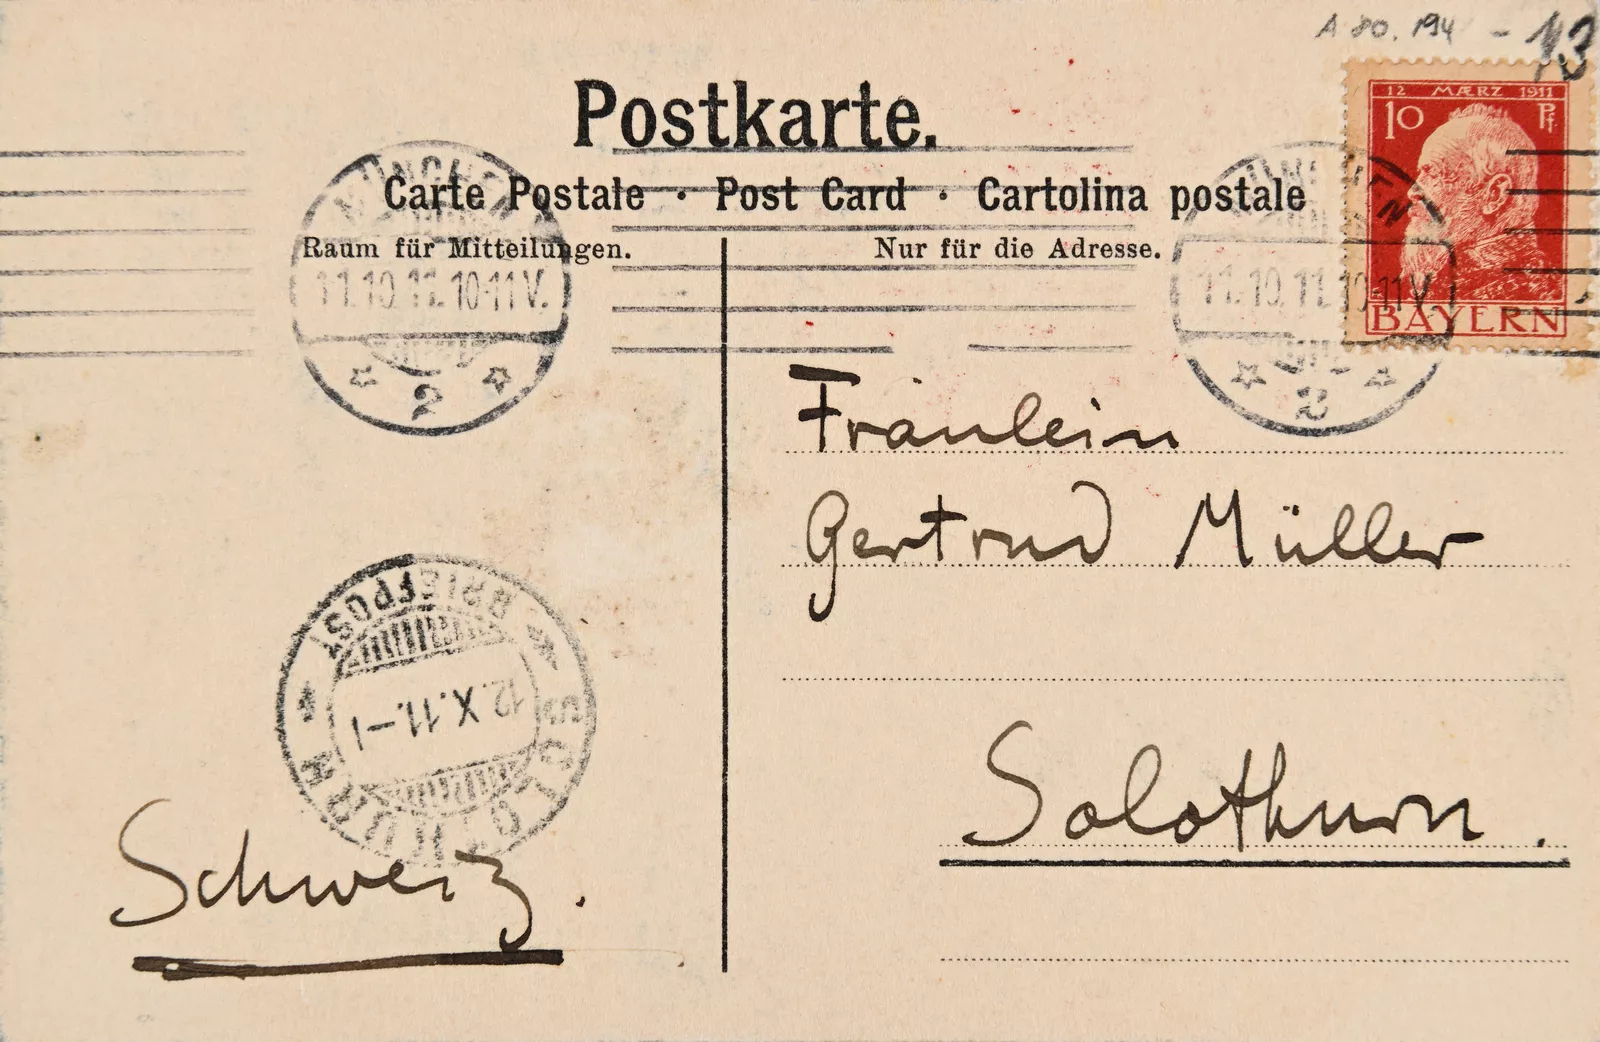 A 80.194 - 13
Postkarte.
Carte Postale · Post Card · Cartolina postale
Raum für Mitteilungen.
Nur für die Adresse.
12 MÆRZ 1911
10 Pf.
BAYERN
MÜNCHEN
11.10.11. 10-11 V.
2
11.10.11. 10-11 V.
2
Fräulein
Gertrud Müller
Solothurn.
BRIEFPOST
12.X.11.-
SOLOTHURN
Schweiz.